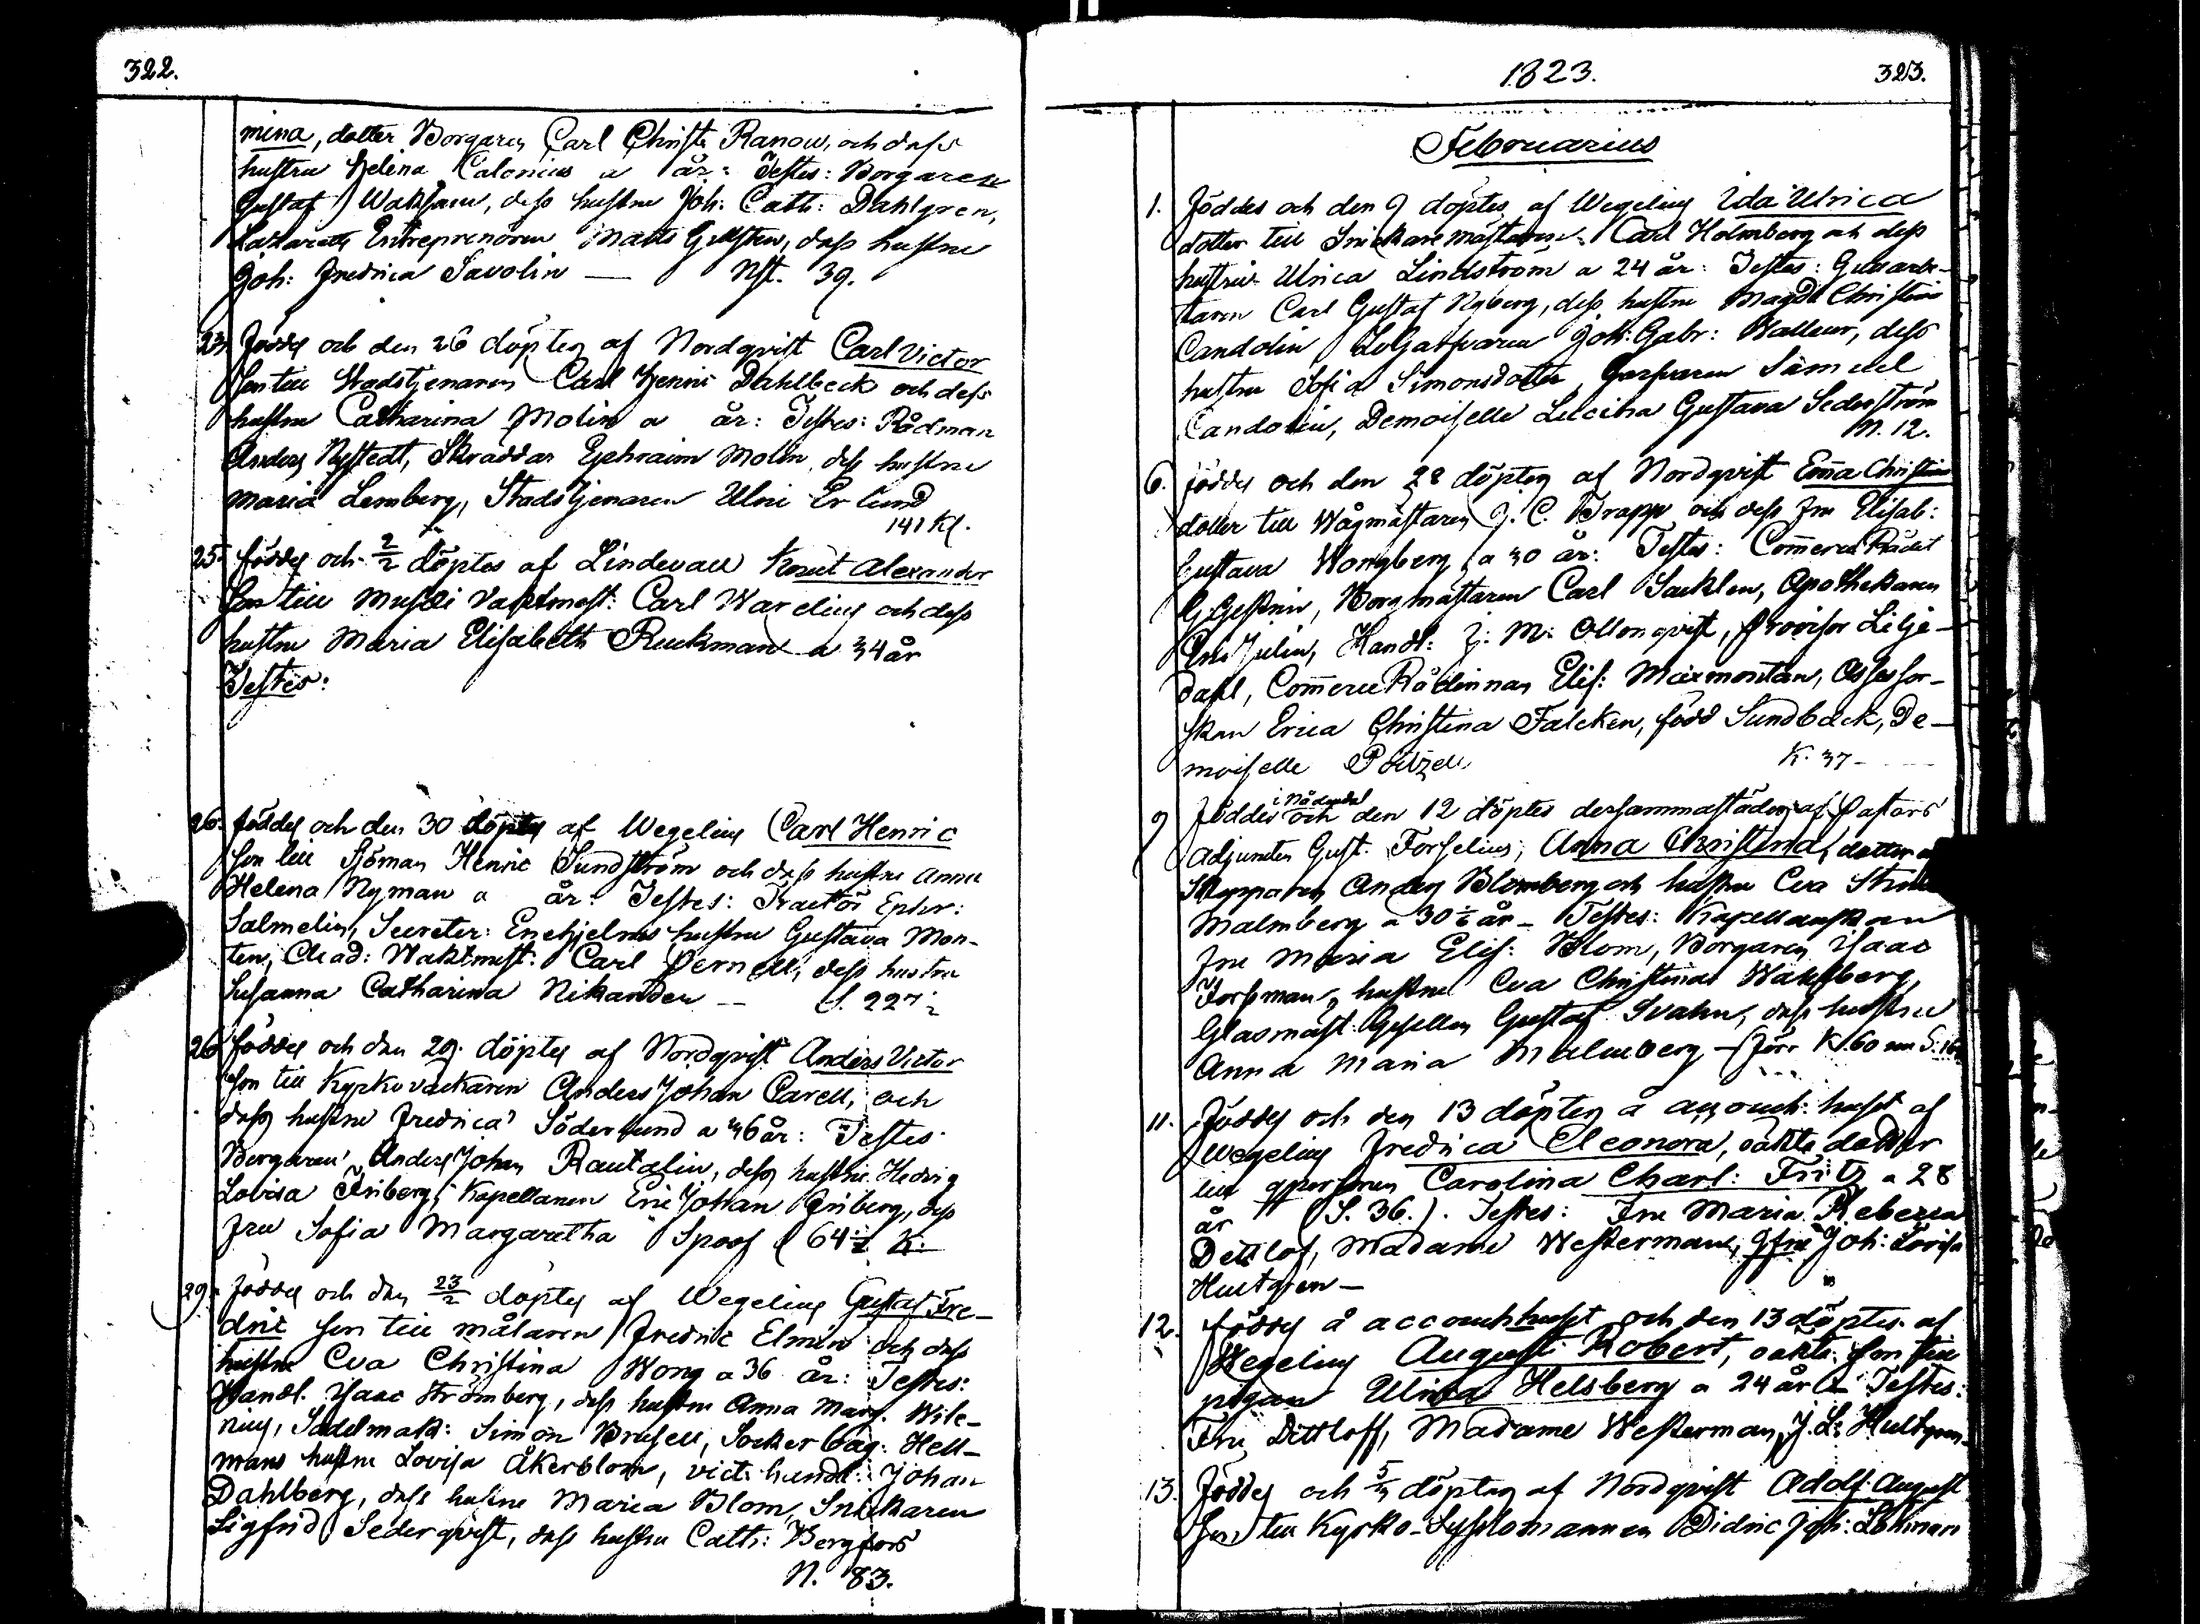 322.
mina, dotter Borgaren Carl Christ. Ranow, och dess
hustru Helena Calonius a år: Testes: Borgaren
Gustaf Waksam, dess hustru Joh: Cath: Dahlgren,
Lazaretts Entreprenören Matts Gillsten, dess hustru
Joh: Fredrica Savolin — Nst. 39.
23. föddes och den 26 döptes af Nordqvist Carl Victor
son till Stadstjenaren Carl Henric Dahlbeck och dess
hustru Catharina Molin a år: Testes: Rådman
Anders Nystedt, Skräddar Ephraim Molin, dess hustru
Maria Lemberg, Stadstjenaren Ulric Erlund
141 Kl.
25. föddes och 2/2 döptes af Lindevall Knut Alexander
son till Musei Vaktmäst: Carl Warelius och dess
hustru Maria Elisabeth Ruckman a 34 år
Testes:
26. föddes och den 30 döptes af Wegelius Carl Henric
son till Sjöman Henric Sundström och dess hustru Anna
Helena Nyman a år: Testes: Tractör Ephr:
Salmelin, Secreter: Enehjelms hustru Gustava Mon-
ten, Acad: Waktmäst: Carl Pernell, dess hustru
Susanna Catharina Nikander — S. 227 1/2
26. föddes och den 29. döptes af Nordqvist Anders Victor
son till Kyrkoväktaren Anders Johan Carell, och
dess hustru Fredrica Söderlund a 36 år: Testes
Borgaren Anders Johan Rautalin, dess hustru Hedvig
Lovisa Friberg, Kapellanen Eric Johan Friberg, dess
Fru Sofia Margaretha Spoof (64 1/2 K.
29. föddes och den 23/2 döptes af Wegelius Gustaf Fre-
dric son till målaren Fredric Elmin och dess
hustru Eva Christina Wong a 36 år: Testes:
Handl. Isaac Strömberg, dess hustru Anna Marg. Wile-
nius, Sadelmak: Simon Brusell, Sockerbag: Hell-
mans hustru Lovisa Åkerblom, vict: handl: Johan
Dahlberg, dess hustru Maria Blom, Snickaren
Sigfrid Sederqvist, dess hustru Cath: Bergfors
N. 83.
1823. 323.
Februarius
1. föddes och den 9 döptes af Wegelius Ida Ulrica
dotter till Snickaremästaren Carl Holmberg och dess
hustru Ulrica Lindström a 24 år: Testes: Gullarbe-
taren Carl Gustaf Nyberg, dess hustru Magd: Christina
Candolin Joh: Gabr: Walleur, dess
hustru Sofia Simonsdotter, Garfvaren Samuel
Candolin, Demoiselle Lucina Gustava Sederström
N. 12.
6. föddes och den 28 döptes af Nordqvist Emma Christina
dotter till Wågmästaren J. C. Trapp och dess Fru Elisab:
Gustava Wongberg a 30 år: Testes: Commerce Rådet
Borgmästaren Carl Sacklen, Apothekaren
Eric Julin, Handl: J: M: Ollonqvist, Provisor Lilje-
dahl, Commerce Rådinnan Elis: Maxmontan, Assessor-
skan Erica Christina Falcken, född Sundback, De-
moiselle K. 37 -
9 föddes i Nådendal och den 12 döptes dersammastädes af Pastors
adjuncten Gust. Forselius, Anna Christina, dotter
Skepparen Anders Blomberg och hustru Eva
Malmberg a 30 1/2 år — Testes: Kapellanskan
Fru Maria Elis: Blom, Borgaren Isaac
Forsman, hustru Eva Christina Wahlberg,
Glasmäst: Gesellen Gustaf Svahn, dess hustru
Anna Maria Malmberg — (förr K. 60 nu S. 16
11. föddes och den 13 döptes å accouch: huset af
Wegelius Fredrica Eleonora, oäkta dotter
till qpersonen Carolina Charl: Fritz a 28
år (S. 36.). Testes: Fru Maria Rebecca
Dettlof, Madame Westerman, Joh: Lovisa
Hultgren —
12. föddes å accouchhuset och den 13 döptes af
Wegelius August Robert, oäkta son till
pigan Ulrica Helsberg a 24 år — Testes:
Fru Dittloff, Madame Westerman, J. L. Hultgren.
13. föddes och 5/3 döptes af Nordqvist Adolf August
son till Kyrko-Sysslomannen Didric Joh: Lohman